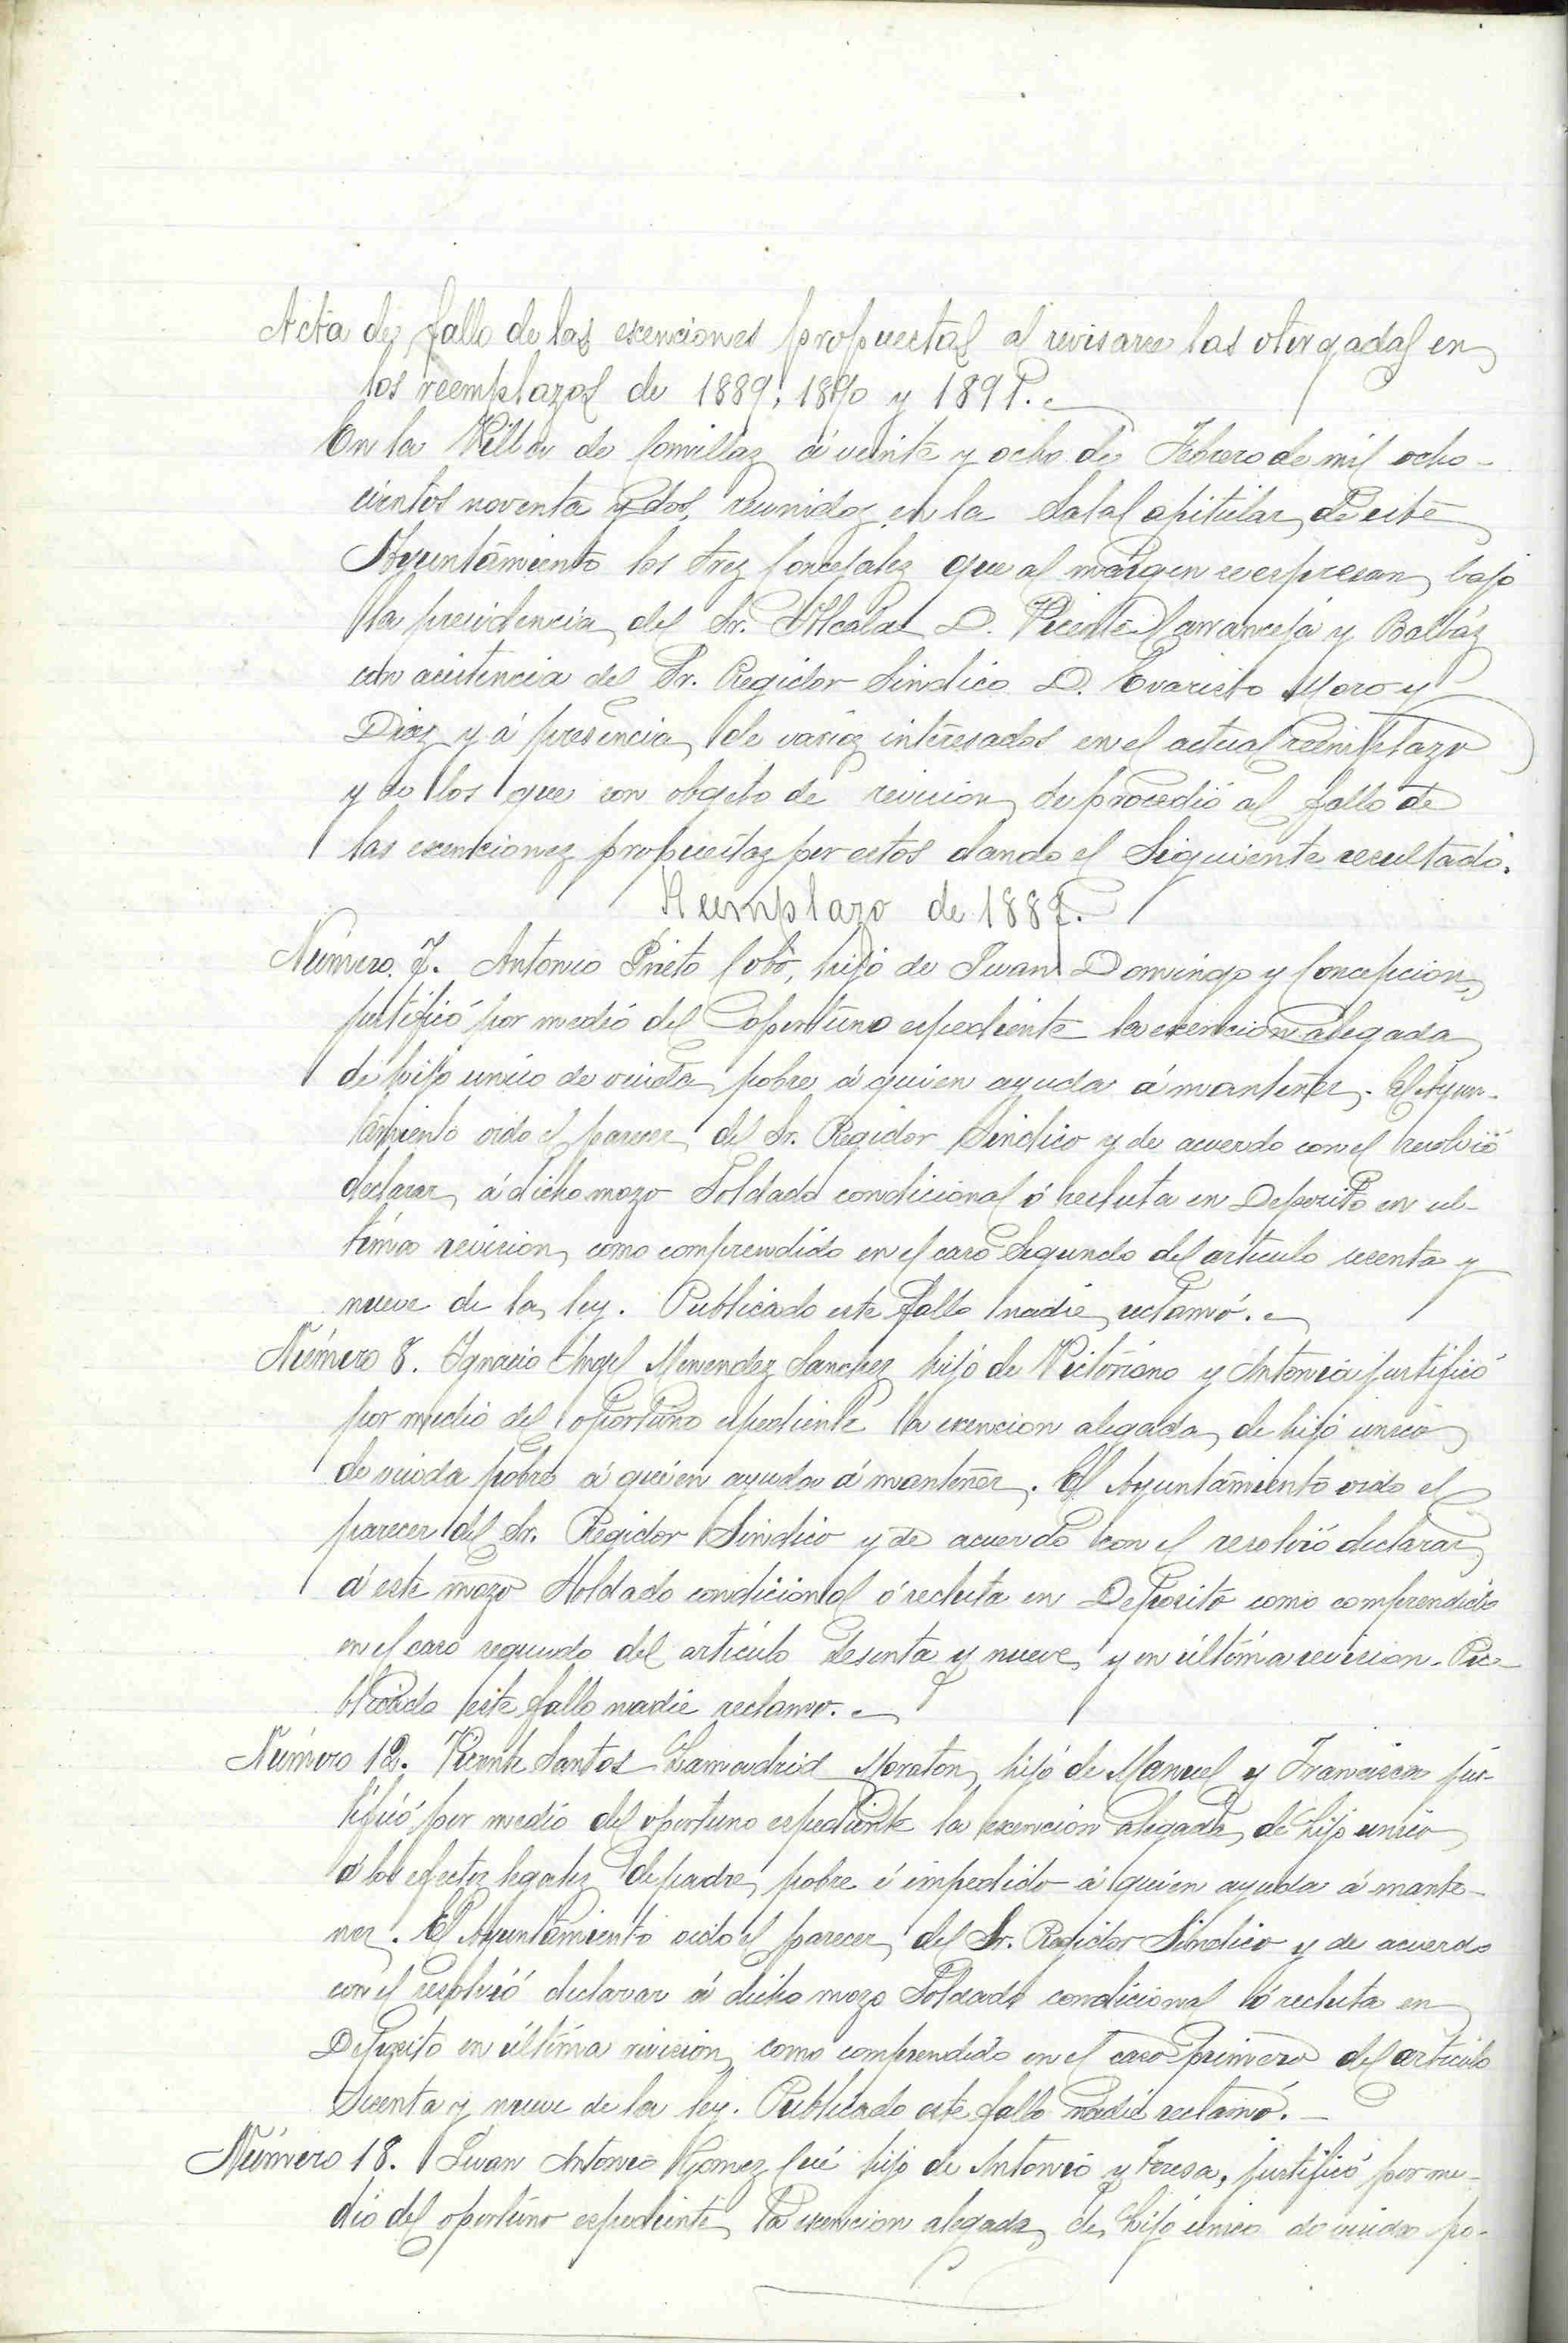 Acta de fallo de las esenciones propuestas al revisarse las otorgadas en
los reemplazos de 1889, 1890 y 1891.
En la Villa de Comillas á veinte y ocho de Febrero de mil ocho-
cientos noventa y dos, reunidos en la Sala Capitular, de este
Ayuntamiento los Sres Concejales que al márgen se espresan, bajo
la presidencia del Sr. Alcalde D. Vicente Carranceja y Balbás
con asistencia del Sr. Regidor Sindico D. Evaristo Moro y
Diaz y á presencia de varios interesados en el actual reemplazo
y de los que con objeto de revision, se procedió al fallo de
las esenciones propuestas por estos dando el siguiente resultado.
Reemplazo de 1889.
Número 7. Antonio Prieto Cobo, hijo de Juan Domingo y Concepcion,
justificó por medio del oportuno espediente la esencion alegada
de hijo unico de viuda pobre á quien ayuda á mantener. El Ayun-
tamiento oido el parecer del Sr. Regidor Sindico y de acuerdo con el resolvió
declarar á dicho mozo Soldado condicional ó recluta en Deposito en ul-
tima revision, como comprendido en el caso segundo del articulo sesenta y
nueve de la ley. Publicado este fallo nadie reclamó.
Número 8. Ignacio Angel Menendez Sanchez hijo de Victoriano y Antonia justificó
por medio del oportuno espediente la esencion alegada, de hijo unico
de viuda pobre á quien ayuda á mantener. El Ayuntamiento oido el
parecer del Sr. Regidor Sindico y de acuerdo con el resolvió declarar
á este mozo Soldado condicional ó recluta en Deposito como comprendido
en el caso segundo del articulo sesenta y nueve y en última revision. Pu-
blicado este fallo nadie reclamo.
Número 12. Vicente Santos Lamadrid Moraton, hijo de Manuel y Francisca jus-
tificó por medio del oportuno espediente la esencion alegada, de hijo unico
á los efectos legales de padre pobre é impedido á quien ayuda á mante-
ner. El Ayuntamiento oido el parecer del Sr. Regidor Sindico y de acuerdo
con el resolvió declarar á dicho mozo Soldado condicional ó recluta en
Deposito en última revision, como comprendido en el caso primero del articulo
sesenta y nueve de la ley. Publicado este fallo nadie reclamó.
Número 18. Juan Antonio Gomez Cué hijo de Antonio y Teresa, justificó por me-
dio del oportuno espediente, la esencion alegada, de hijo unico de viuda po-